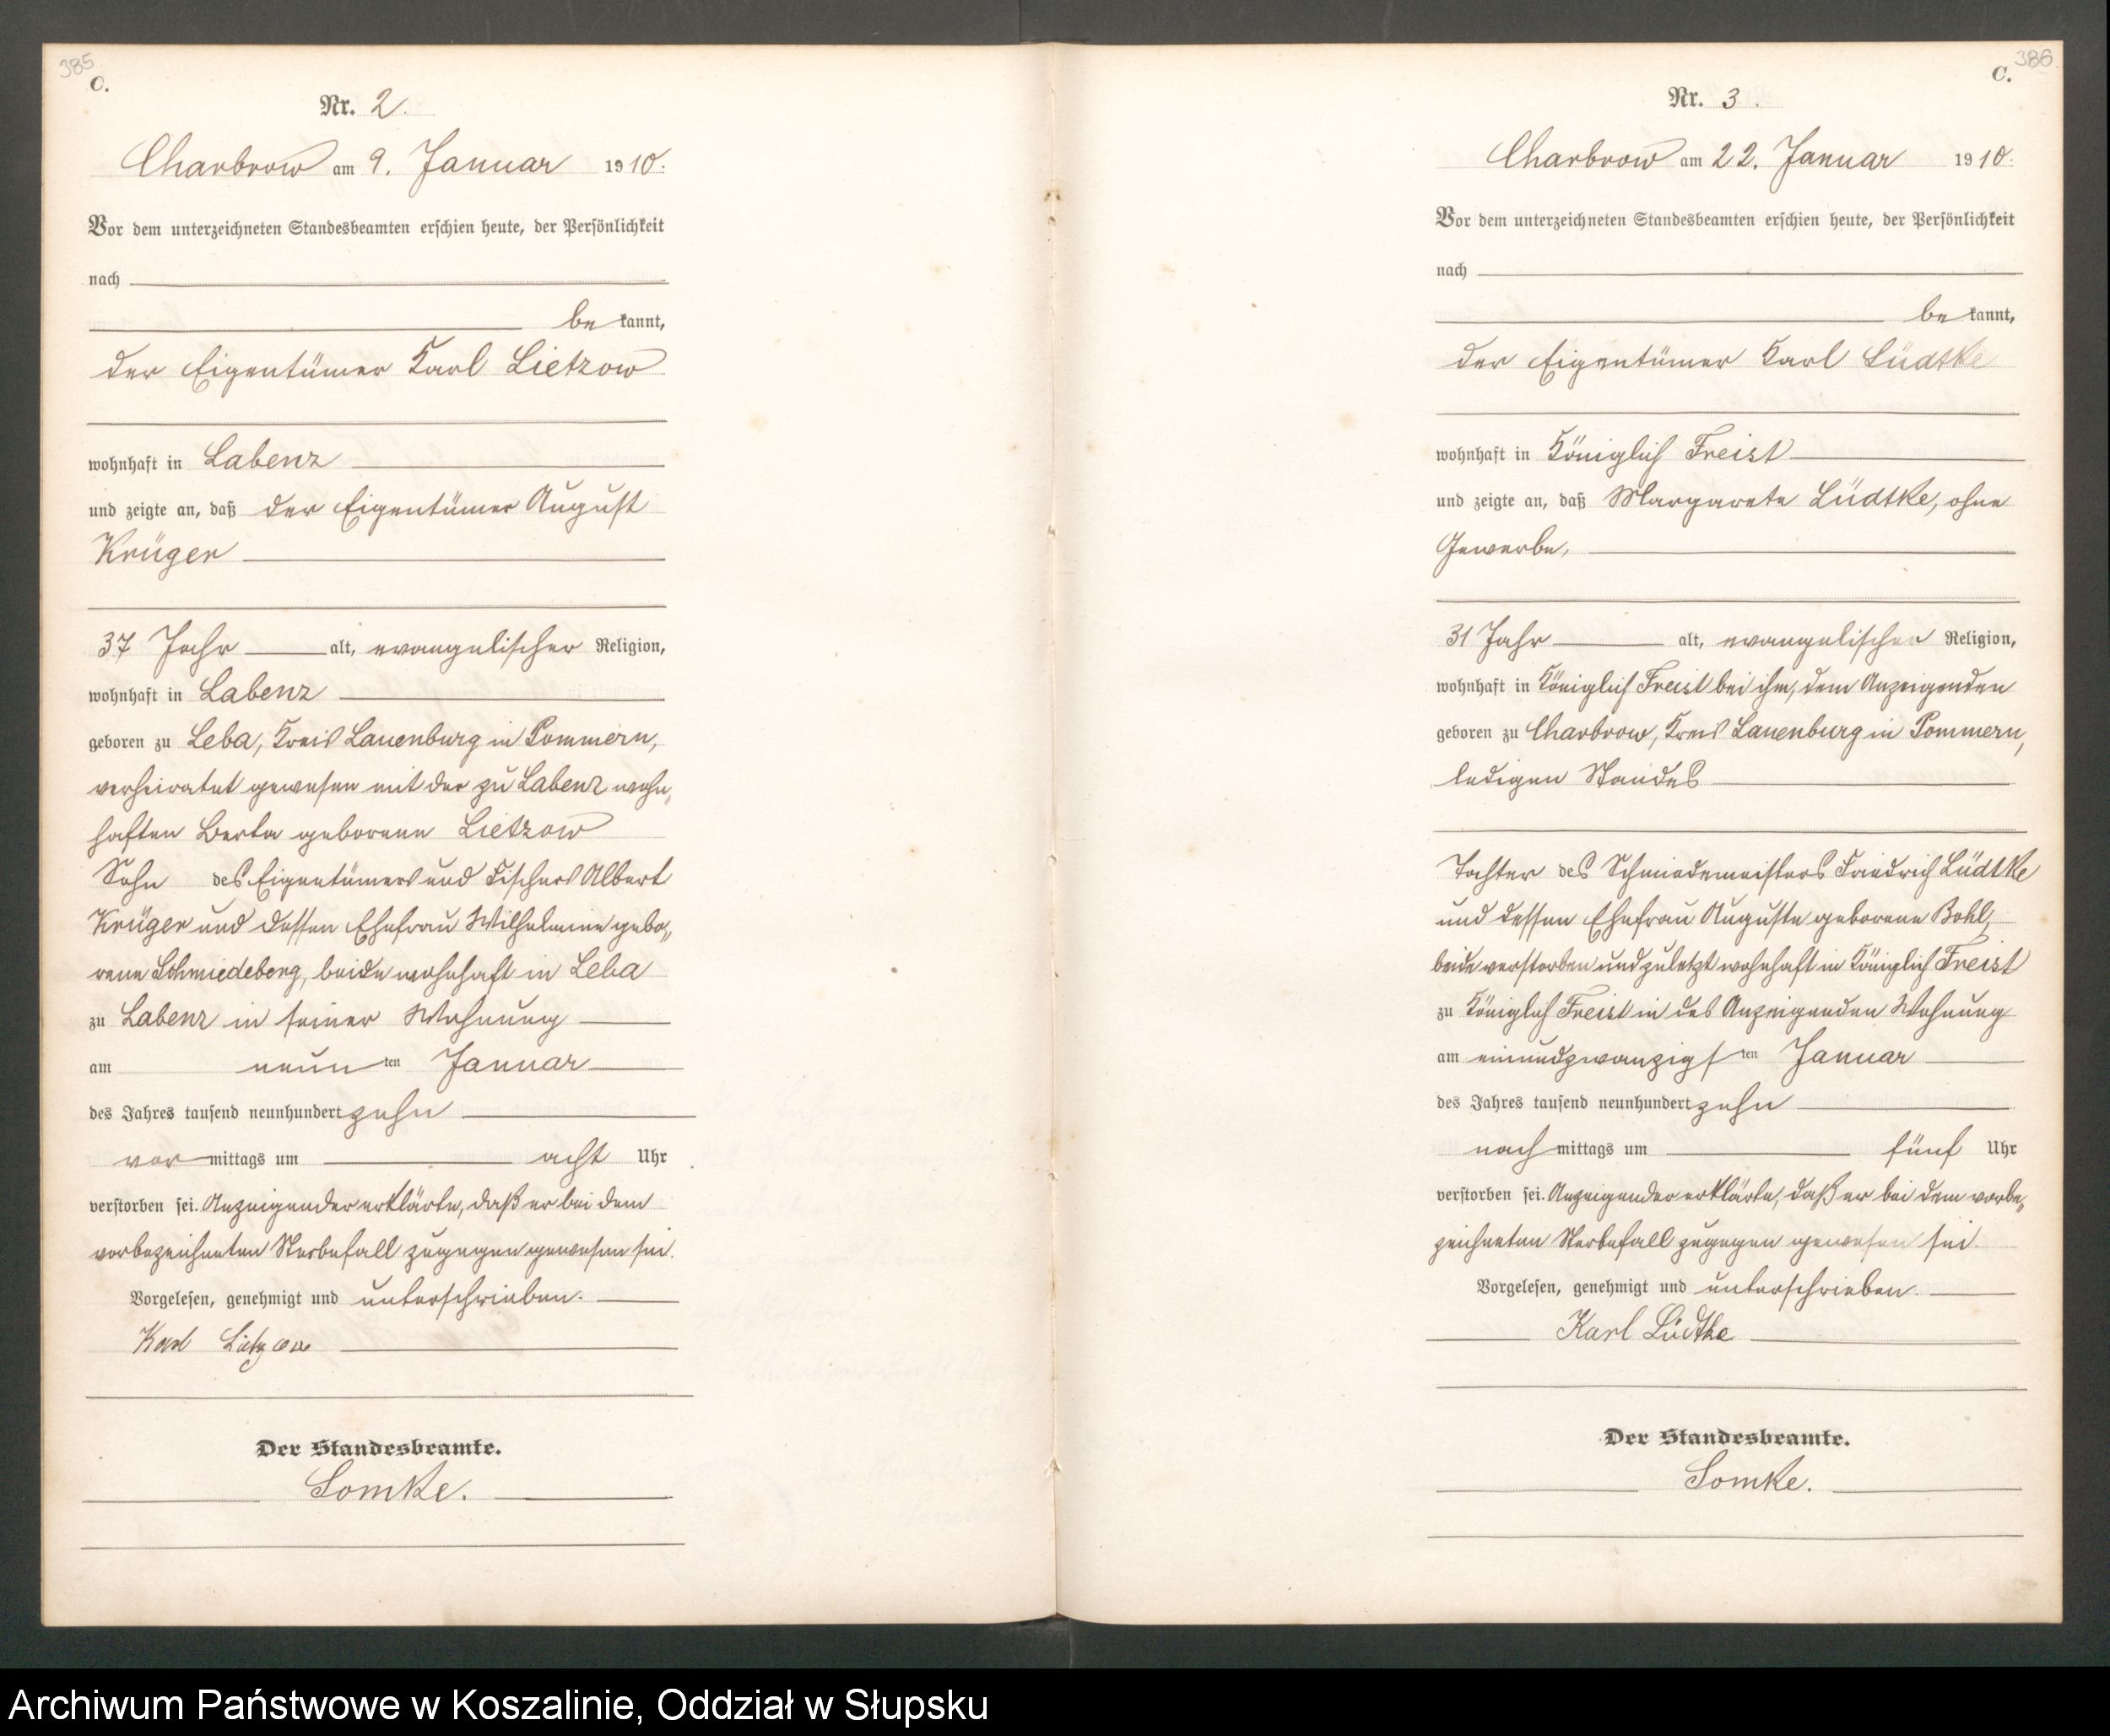 385
C.
Nr. 2.
Charbrow am 9. Januar 1910.
Vor dem unterzeichneten Standesbeamten erschien heute, der Persönlichkeit
nach
be kannt,
der Eigentümer Karl Lietzow
wohnhaft in Labenz
und zeigte an, daß der Eigentümer August
Krüger
37 Jahr alt, evangelischer Religion,
wohnhaft in Labenz
geboren zu Leba, Kreis Lauenburg in Pommern,
verheiratet gewesen mit der zu Labenz wohn„
haften Berta geborene Lietzow
Sohn des Eigentümers und Fischers Albert
Krüger und dessen Ehefrau Wilhelmine gebo„
rene Schmiedeberg, beide wohnhaft in Leba
zu Labenz in seiner Wohnung
am neun ten Januar
des Jahres tausend neunhundert zehn
vor mittags um acht Uhr
verstorben sei. Anzeigender erklärte, daß er bei dem
vorbezeichneten Sterbefall zugegen gewesen sei.
Vorgelesen, genehmigt und unterschrieben.
Karl Lietzow
Der Standesbeamte.
Somke.
386
C.
Nr. 3.
Charbrow am 22. Januar 1910.
Vor dem unterzeichneten Standesbeamten erschien heute, der Persönlichkeit
nach
be kannt,
der Eigentümer Karl Lüdtke
wohnhaft in Königlich Freist
und zeigte an, daß Margarete Lüdtke, ohne
Gewerbe,
31 Jahr alt, evangelischer Religion,
wohnhaft in Königlich Freist bei ihm, dem Anzeigenden
geboren zu Charbrow, Kreis Lauenburg in Pommern,
ledigen Standes
Tochter des Schmiedemeisters Friedrich Lüdtke
und dessen Ehefrau Auguste geborene Bohl,
beide verstorben und zuletzt wohnhaft in Königlich Freist
zu Königlich Freist in des Anzeigenden Wohnung
am einundzwanzigs ten Januar
des Jahres tausend neunhundert zehn
nach mittags um fünf Uhr
verstorben sei. Anzeigender erklärte, daß er bei dem vorbe„
zeichneten Sterbefall zugegen gewesen sei.
Vorgelesen, genehmigt und unterschrieben.
Karl Lüdtke
Der Standesbeamte.
Somke.
Archiwum Państwowe w Koszalinie, Oddział w Słupsku